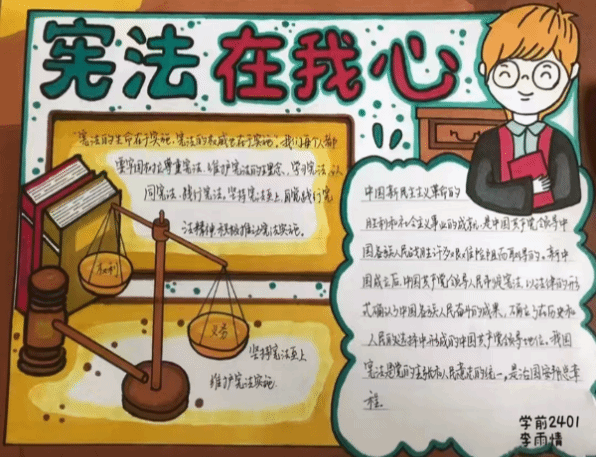 宪法在我心
"宪法的生命在于实施,宪法的权威也在于实施"。我们每个人都
要牢固树立尊重宪法、维护宪法的理念,学习宪法、认
同宪法、践行宪法,坚持宪法至上,自觉践行宪
法精神,积极推动宪法实施。
权利
义务
坚持宪法至上
维护宪法实施
中国新民主主义革命的
胜利和社会主义事业的成就,是中国共产党领导中
国各族人民战胜许多艰难险阻而取得的。新中
国成立后,中国共产党领导人民制定宪法,以法律的形
式确认了中国各族人民奋斗的成果,确立了在历史和
人民的选择中形成的中国共产党领导地位。我国
宪法是党的主张和人民意志的统一,是治国安邦总章
程
学前2401
李雨情